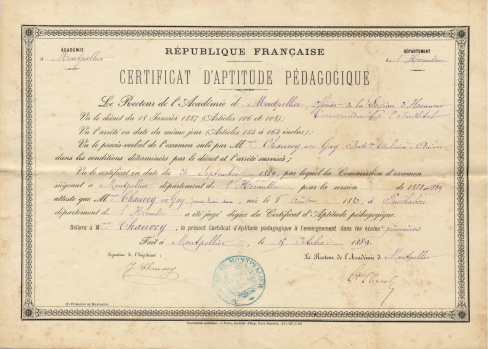 ACADÉMIE
à Montpellier
RÉPUBLIQUE FRANÇAISE
DÉPARTEMENT
de l'Hérault
CERTIFICAT D'APTITUDE PÉDAGOGIQUE
Le Recteur de l'Académie d Montpellier, officier de la Légion d'Honneur
Correspondant de l'Institut
Vu le décret du 18 Janvier 1887 (Articles 106 et 108);
Vu l'arrêté en date du même jour (Articles 154 à 163 inclus);
Vu le procès-verbal de l'examen subi par M Chauvey née Gay
dans les conditions déterminées par le décret et l'arrêté susvisés;
Vu le certificat en date du Septembre 1889, par lequel la Commission d'examen
siégeant à Montpellier département de l'Hérault pour la session de 1888-1889
atteste que M Chauvey née Gay, née le 8 Août 1863, à
département de l'Hérault a été jugé digne du Certificat d'Aptitude pédagogique.
Délivre à M Chauvey, le présent Certificat d'Aptitude pédagogique à l'enseignement dans les écoles primaires
Fait à Montpellier, le 15 Octobre 1889.
Signature de l'Impétrant :
Le Recteur de l'Académie d Montpellier
G Chauvey